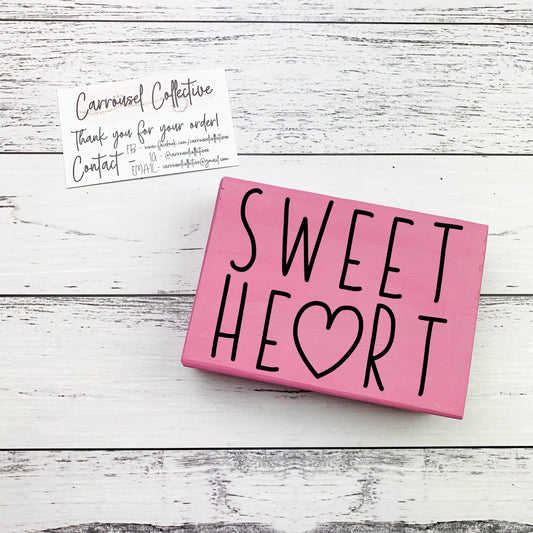 Carrousel Collective
Thank you for your order!
Contact - FB - www.facebook.com/carrouselcollective
IG - @carrouselcollective
EMAIL - carrouselcollective@gmail.com
SWEET
HE♡RT